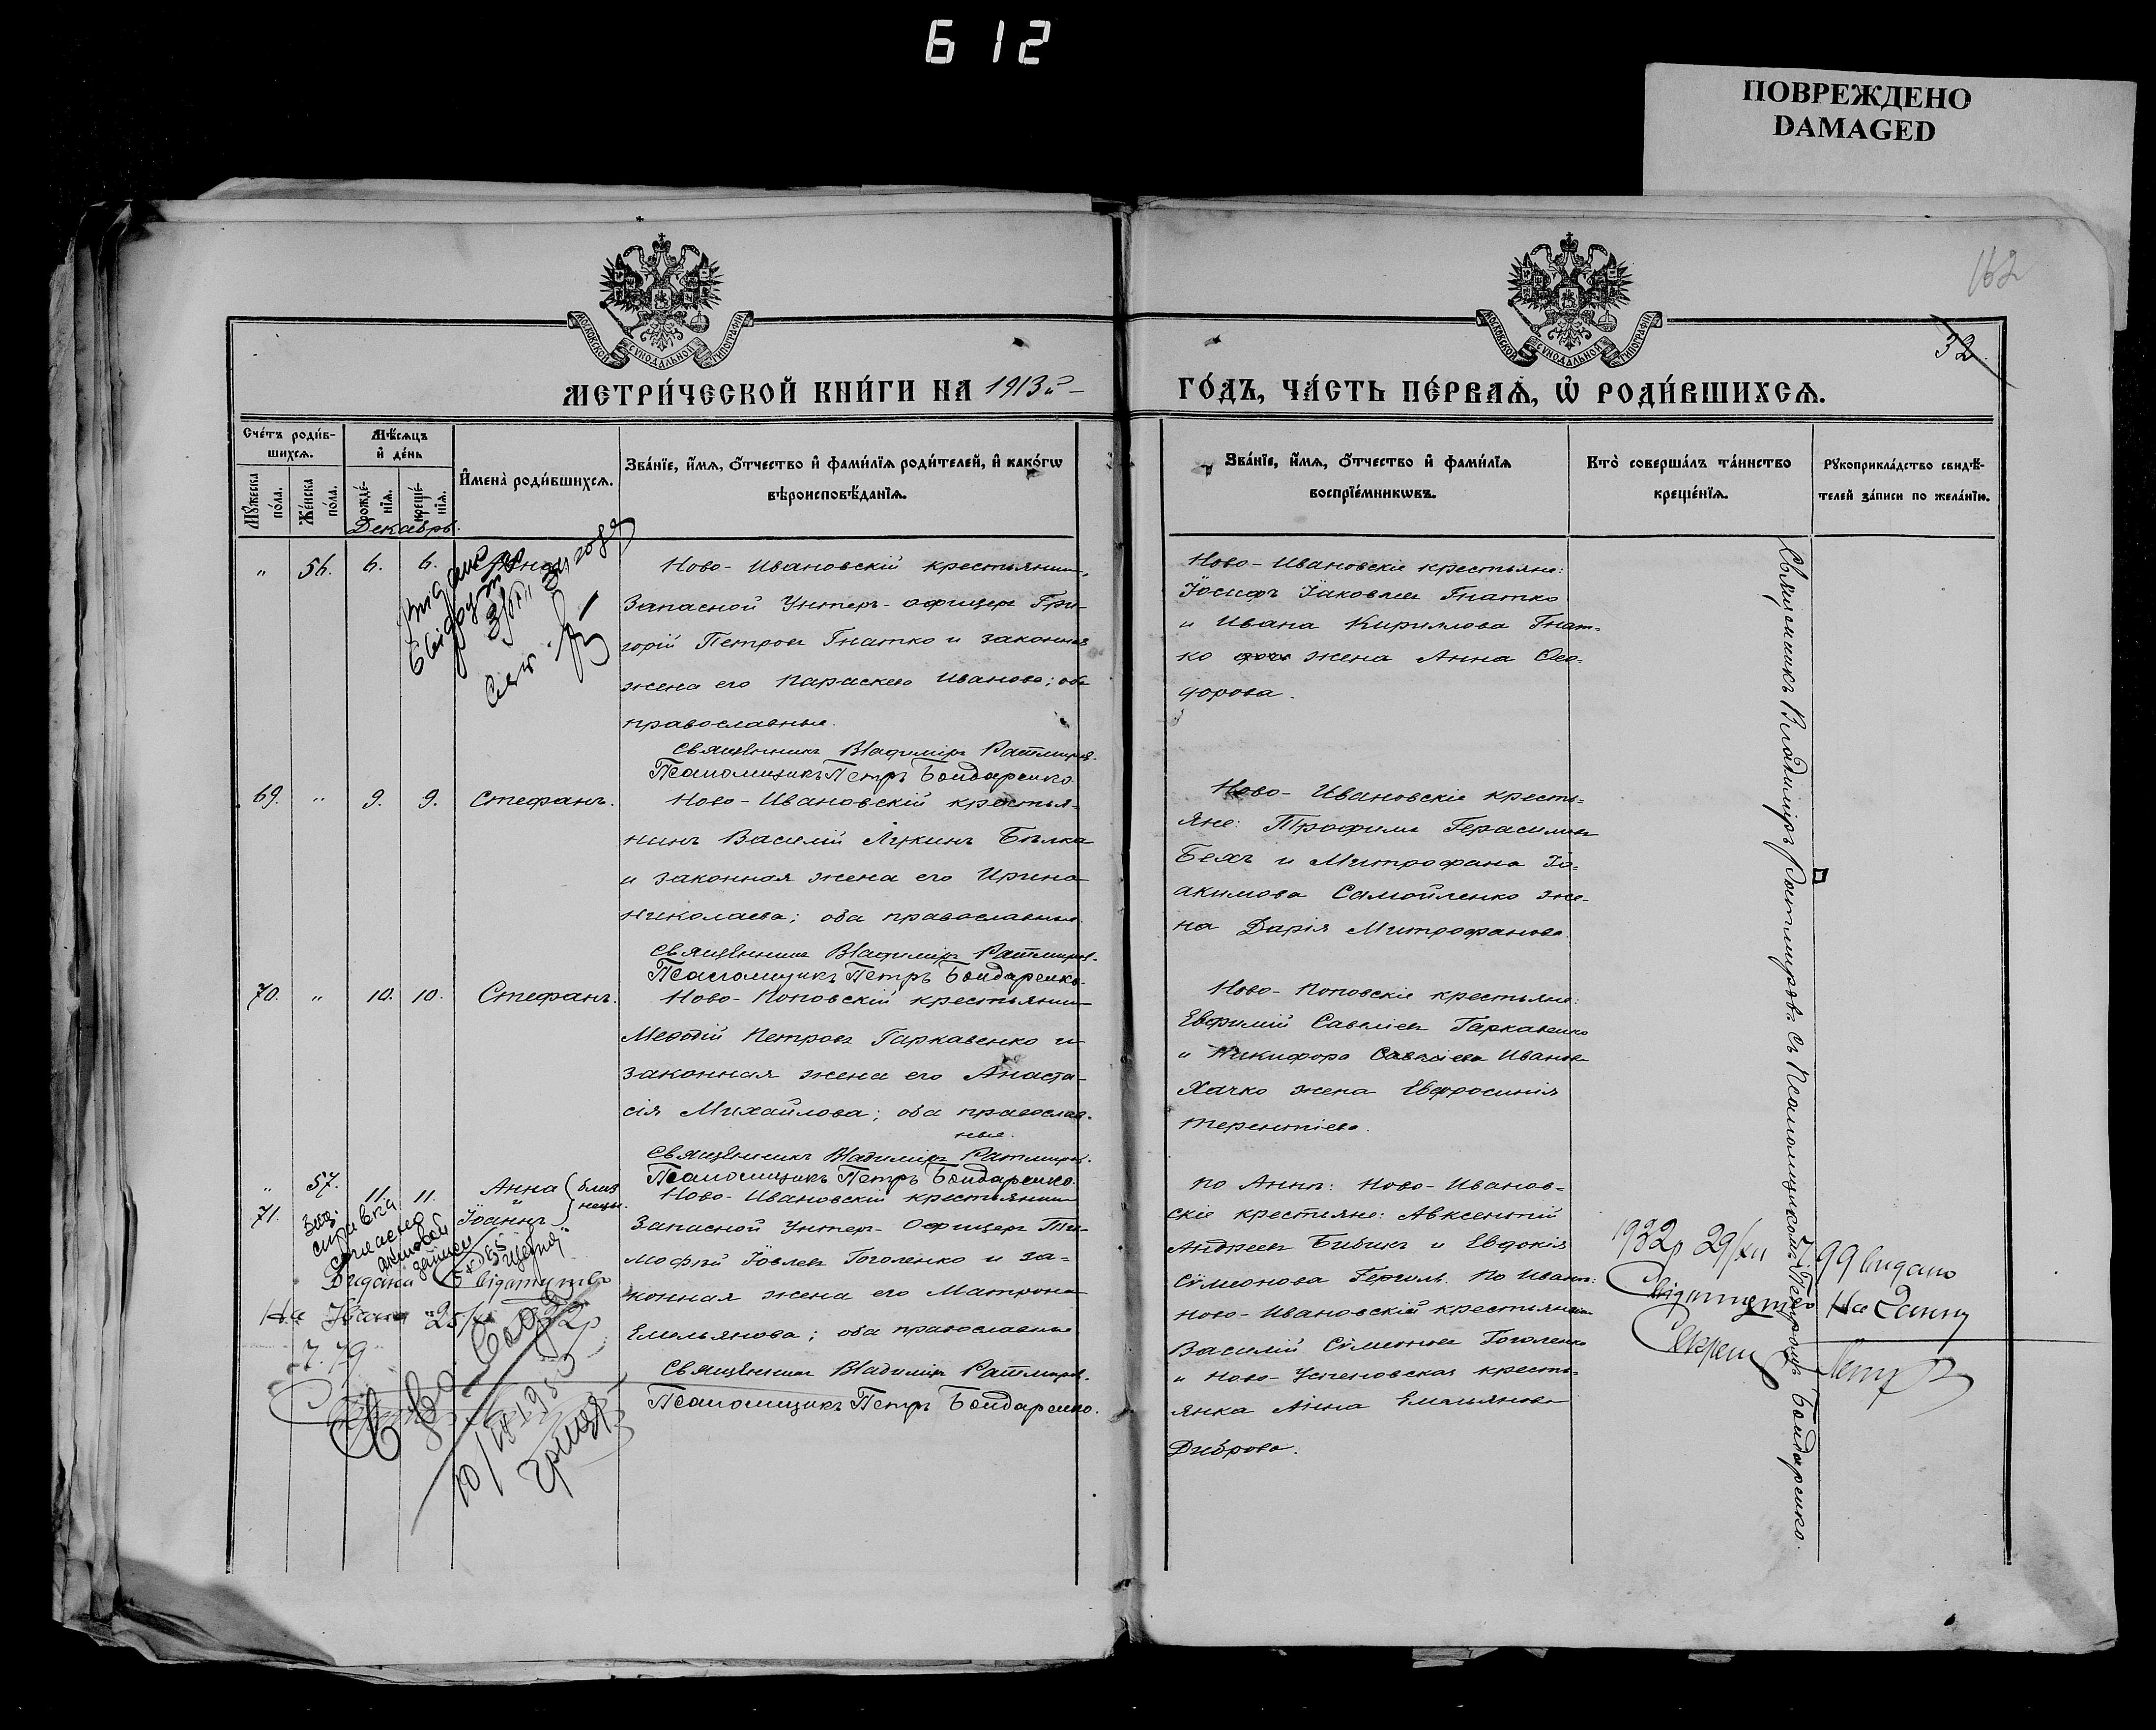 612
ПОВРЕЖДЕНО
DAMAGED
162
32.
МОСКОВСКОЙ СѴНОДАЛЬНОЙ ТИПОГРАФІИ
МОСКОВСКОЙ СѴНОДАЛЬНОЙ ТИПОГРАФІИ
МЕТРИ́ЧЕСКОЙ КНИ́ГИ НА 1913й
ГО́ДЪ, ЧА́СТЬ ПЕ́РВАѦ, Ѡ҆ РОДИ́ВШИХСѦ.
Сче́тъ роди́в-
шихсѧ.
Мꙋжеска по́ла.
Же́нска по́ла.
Мѣ́сѧцъ
и҆ де́нь
рожде́-
нїѧ.
креще́-
нїѧ.
И҆мена̀ роди́вшихсѧ.
Зва́нїе, и҆́мѧ, ѻ҆́тчество и҆ фамі́лїѧ роди́телей, и҆ како́гѡ
вѣроисповѣ́данїѧ.
Зва́нїе, и҆́мѧ, ѻ҆́тчество и҆ фамі́лїѧ
воспрїе́мникѡвъ.
Кто̀ соверша́лъ та́инство
креще́нїѧ.
Рꙋкоприкла́дство свидѣ́-
телей за́писи по жела́нїю.
Декабрь.
" 56. 6. 6.
Ново-Ивановскій крестьянинъ,
Запасной Унтеръ-офицеръ Гри-
горій Петровъ Гнатко и законная
жена его Параскева Иванова; оба
православные.
Священникъ Владимиръ Ратмировъ.
Псаломщикъ Петръ Бондаренко
Ново-Ивановскіе крестьяне:
Іосифъ Іаковлевъ Гнатко
и Ивана Кириллова Гнат=
ко жена Анна Ѳео-
дорова.
69. " 9. 9. Стефанъ.
Ново-Ивановскій крестья-
нинъ Василій Лукинъ Бѣлка
и законная жена его Ирина
Николаева; оба православные
Священникъ Владимиръ Ратмировъ.
Псаломщикъ Петръ Бондаренко.
Ново-Ивановскіе кресть=
яне: Трофимъ Герасимовъ
Бехъ и Митрофана Іо-
акимова Самойленко же-
на Дарія Митрофанова.
70. " 10. 10. Стефанъ.
Ново-Поповскій крестьянинъ
Меѳодій Петровъ Гаркавенко и
законная жена его Анаста-
сія Михайлова; оба православ-
ные.
Священникъ Владимиръ Ратмировъ.
Псаломщикъ Петръ Бондаренко.
Ново-Поповскіе крестьяне:
Евфимій Савеліевъ Гаркавенко
и Никифора Иванова
Хачко жена Евфросинія
Терентіева.
" 57. 11. 11. Анна близ
71. " Іоаннъ нецы.
Ново-Ивановскій крестьянинъ
Запасной Унтеръ-Офицеръ Ти-
моѳей Іовлевъ Гоголенко и за-
конная жена его Матрона
Емельянова; оба православные
Священникъ Владимиръ Ратмировъ.
Псаломщикъ Петръ Бондаренко.
По Аннѣ: Ново-Иванов=
скіе крестьяне: Авксентій
Андреевъ Бибикъ и Евдокія
Сѵмеонова Гергель. По Иванѣ:
Ново-Ивановскій крестьянинъ
Василій Сѵмеоновъ Гоголенко
и Ново-Успеновская кресть-
янка Анна Емельянова
Диброва.
Священникъ Владиміръ Ратмировъ съ Псаломщикомъ Петромъ Бондаренко.
справка
согласно
На Івана 25/
ч. 79
1932р 29/XII 99 видано
Свідоцтво На Ганну
Секрет